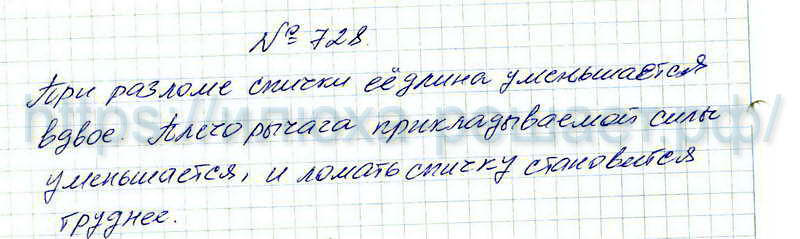 № 728.
При разломе спички её длина уменьшается
вдвое. Плечо рычага прикладываемой силы
уменьшается, и ломать спичку становится
труднее.